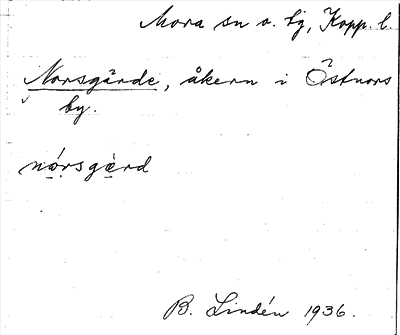 Mora sn o. tg, Kopp. l.
Norsgärde, åkern i Östnors
by.
nǫ́rsgę̀rd
B. Lindén 1936.